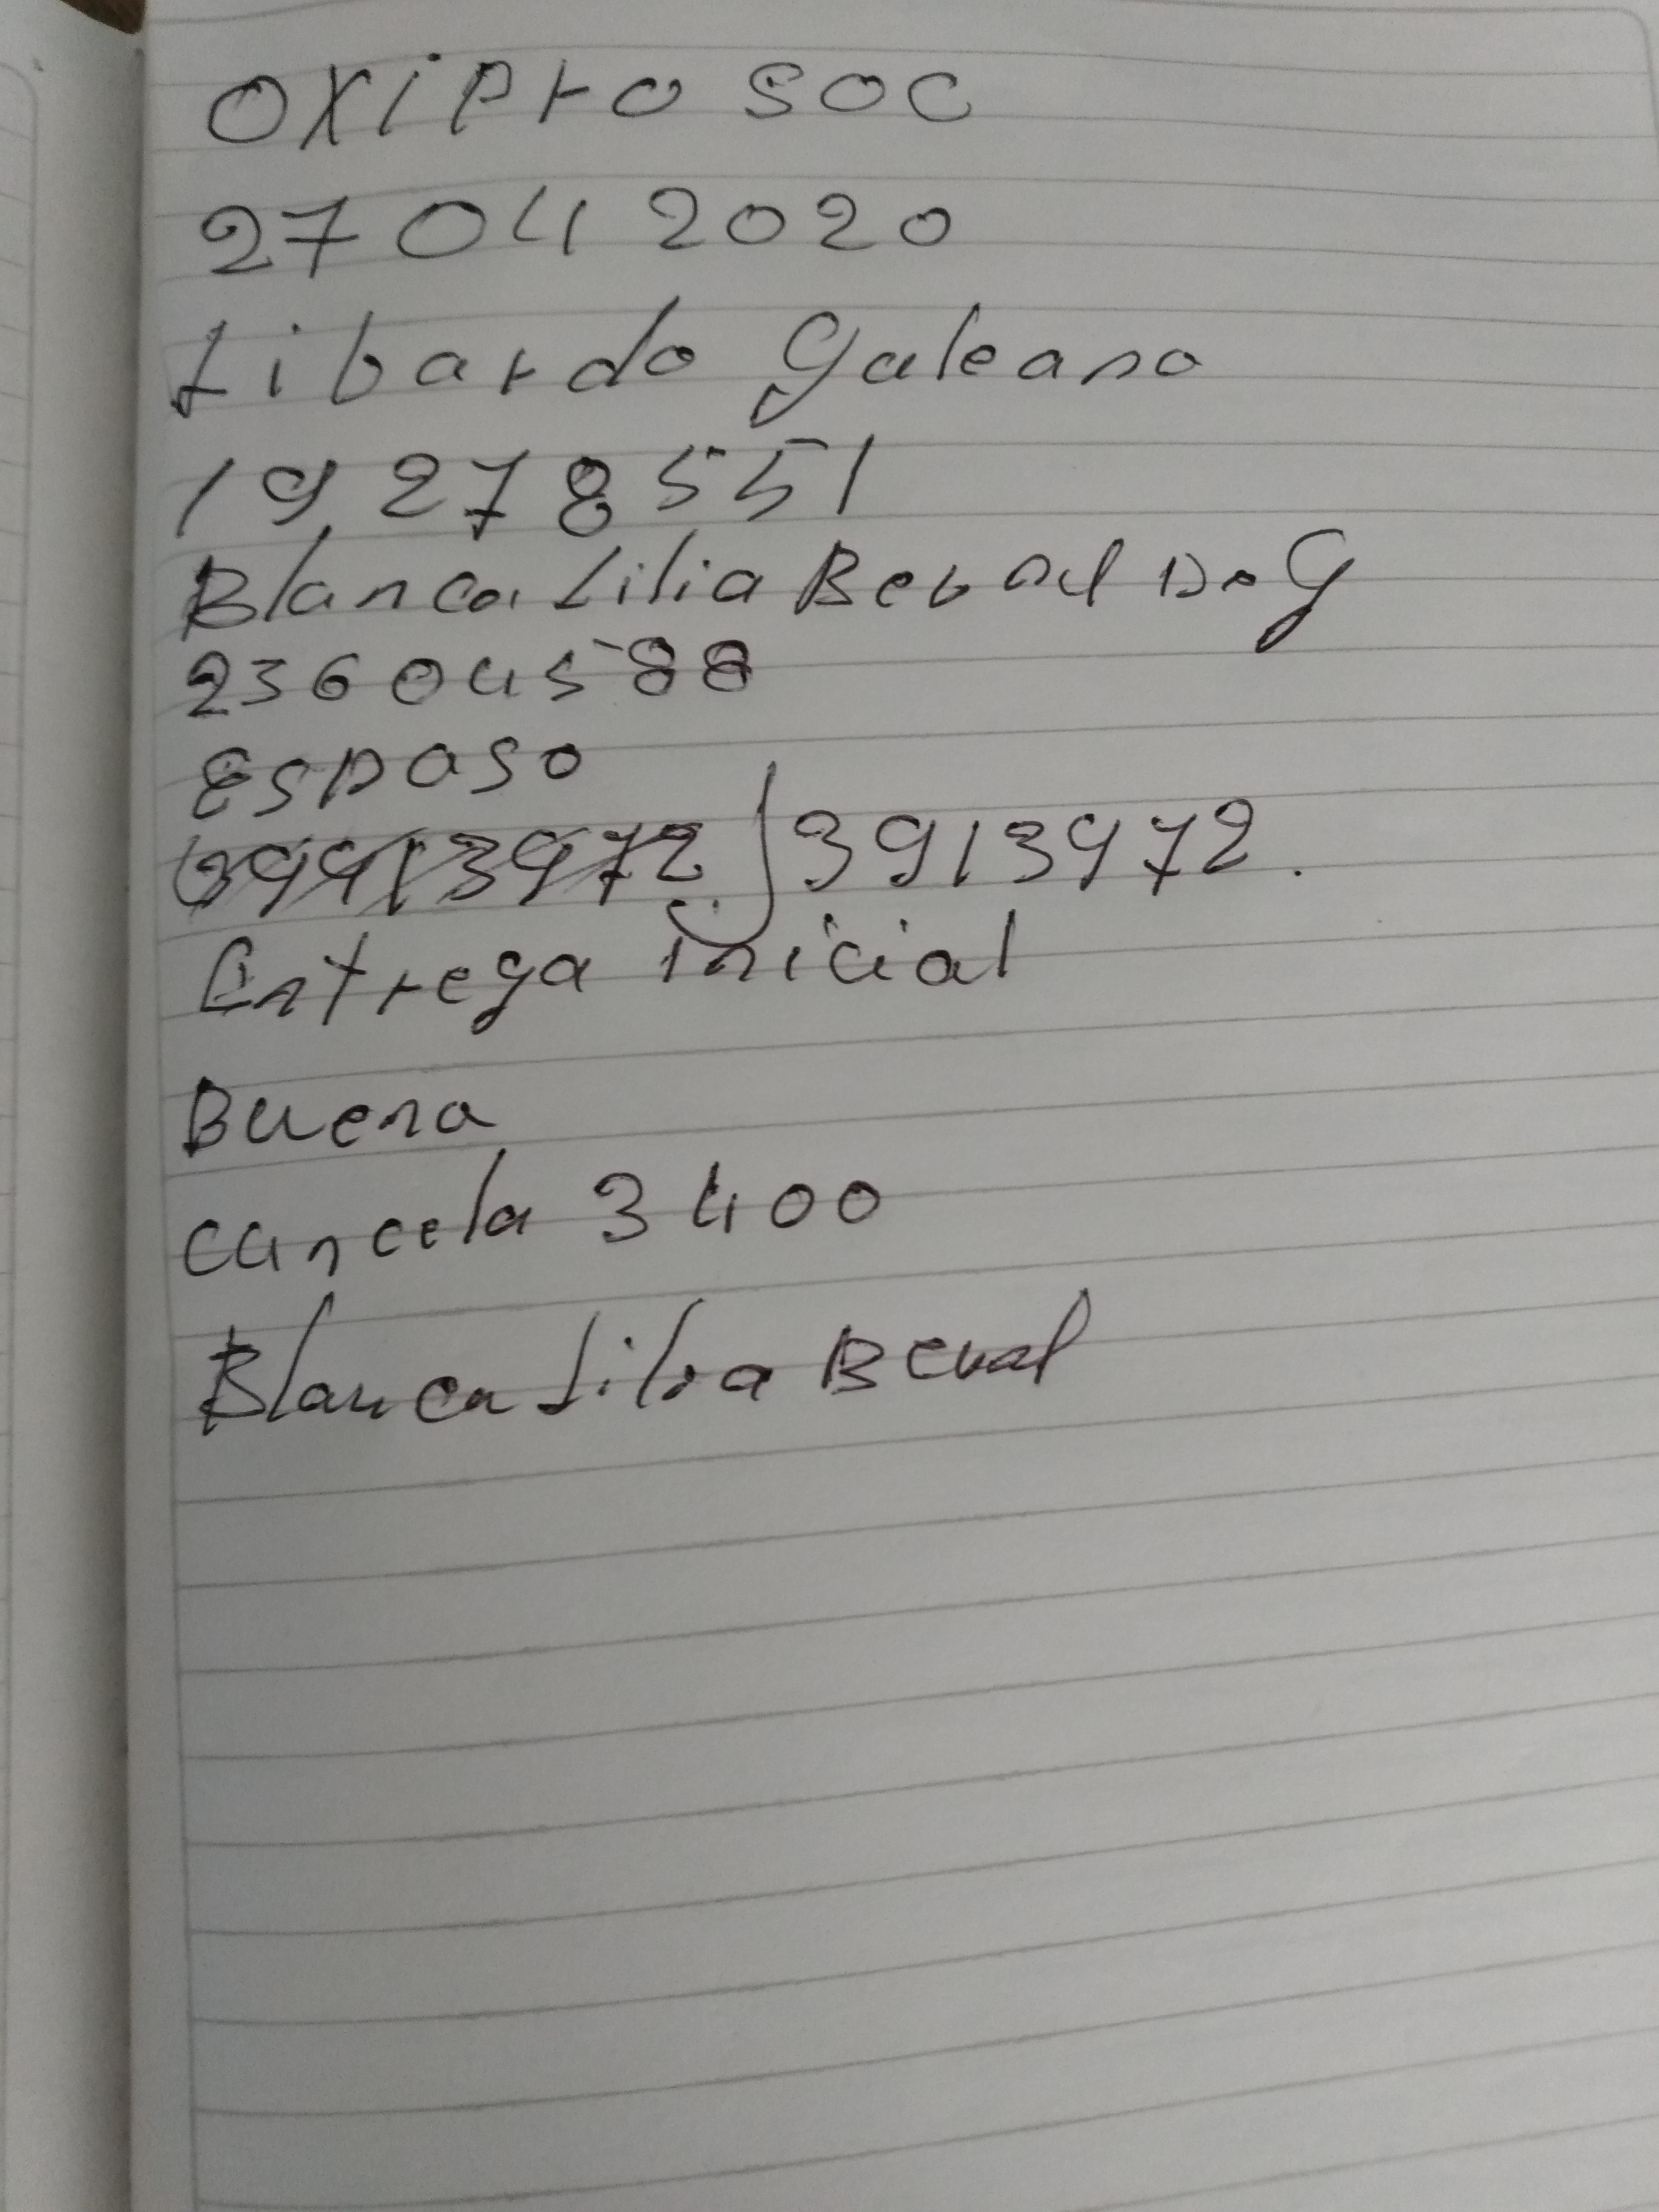 OXIPro SOC
27 04 2020
Libardo Galeano
19 278551
Blanca Lilia Bernal De G
23604588
Esposo
3913972.
Entrega inicial
Buena
cancela 3400
Blanca Lilia Bernal